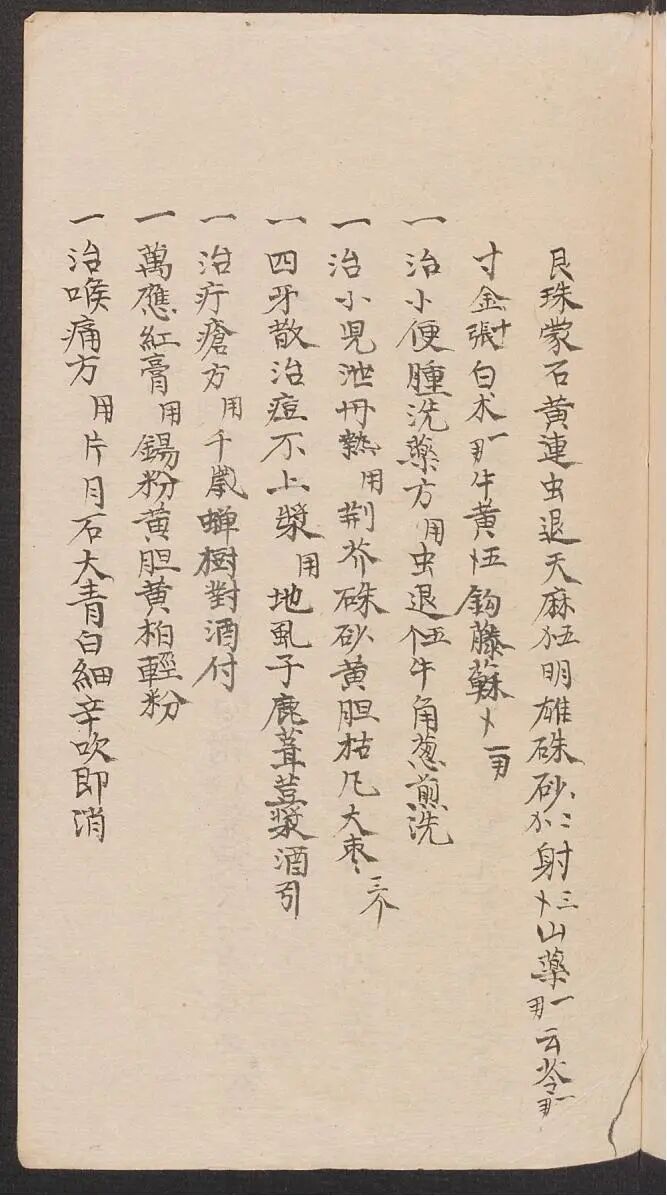 艮珠蒙石黄連虫退天麻伍明雄硃砂二射三山藥一云苓一
寸金張十白朮一牛黄伍鈎藤蘇一
一治小便腫洗藥方用虫退伍个牛角葱煎洗
一治小児泄丹熱用荆芥硃砂黄胆枯凡大枣三个
一四牙散治痘不上漿用地虱子鹿茸荳漿酒引
一治疔瘡方用千歲蝉樹對酒付
一萬應紅膏用錫粉黄胆黄柏輕粉
一治喉痛方用片月石大青白細辛吹即消